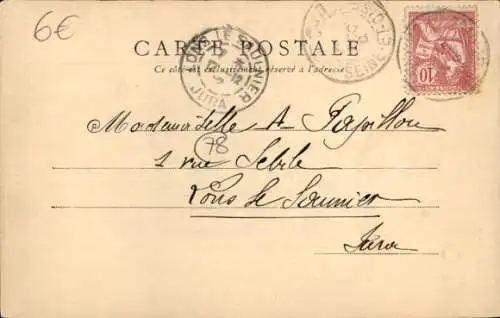 6€
CARTE POSTALE
Ce côté est exclusivement réservé à l'adresse
LONS-LE-SAUNIER
JURA
10
Mademoiselle A Papillon
78
1 rue Sebile
Lons le Saunier
Jura